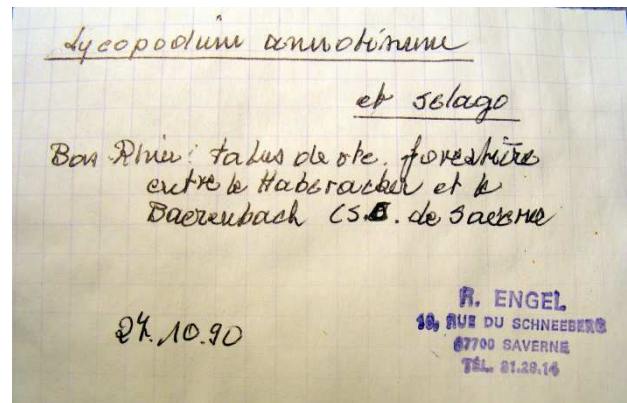 Lycopodium annotinum
et selago
Bas Rhin : talus de rte. forestière
entre le Haberacker et le
Baerenbach (S.E. de Saverne
27.10.90
R. ENGEL
19, RUE DU SCHNEEBERG
67700 SAVERNE
TÉL. 91.28.14